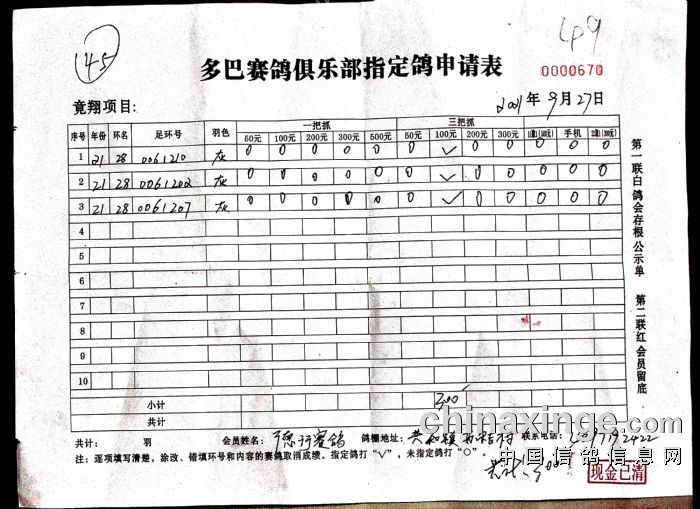 145
49
多巴赛鸽俱乐部指定鸽申请表
0000670
竟翔项目:
2021年9月27日
序号 年份 环名 足环号 羽色 一把抓 三把抓 手机
50元 100元 200元 300元 500元 50元 100元 200元 300元
1 21 28 0061210 灰 0 0 0 0 0 0 ✓ 0 0 0 0 0
2 21 28 0061202 灰 0 0 0 0 0 0 ✓ 0 0 0 0 0
3 21 28 0061207 灰 0 0 0 0 0 0 ✓ 0 0 0 0 0
4
5
6
7
8
9
10
小计 300
共计
共计: 羽 会员姓名: 赛鸽 鸽棚地址: 共和镇 村 联系电话:
注:逐项填写清楚,涂改、错填环号和内容的赛鸽取消成绩。指定鸽打"✓",未指定鸽打"○"。
300
现金已清
第一联白鸽会存根公示单 第二联红会员留底
chinaxinge.com
中国信鸽信息网